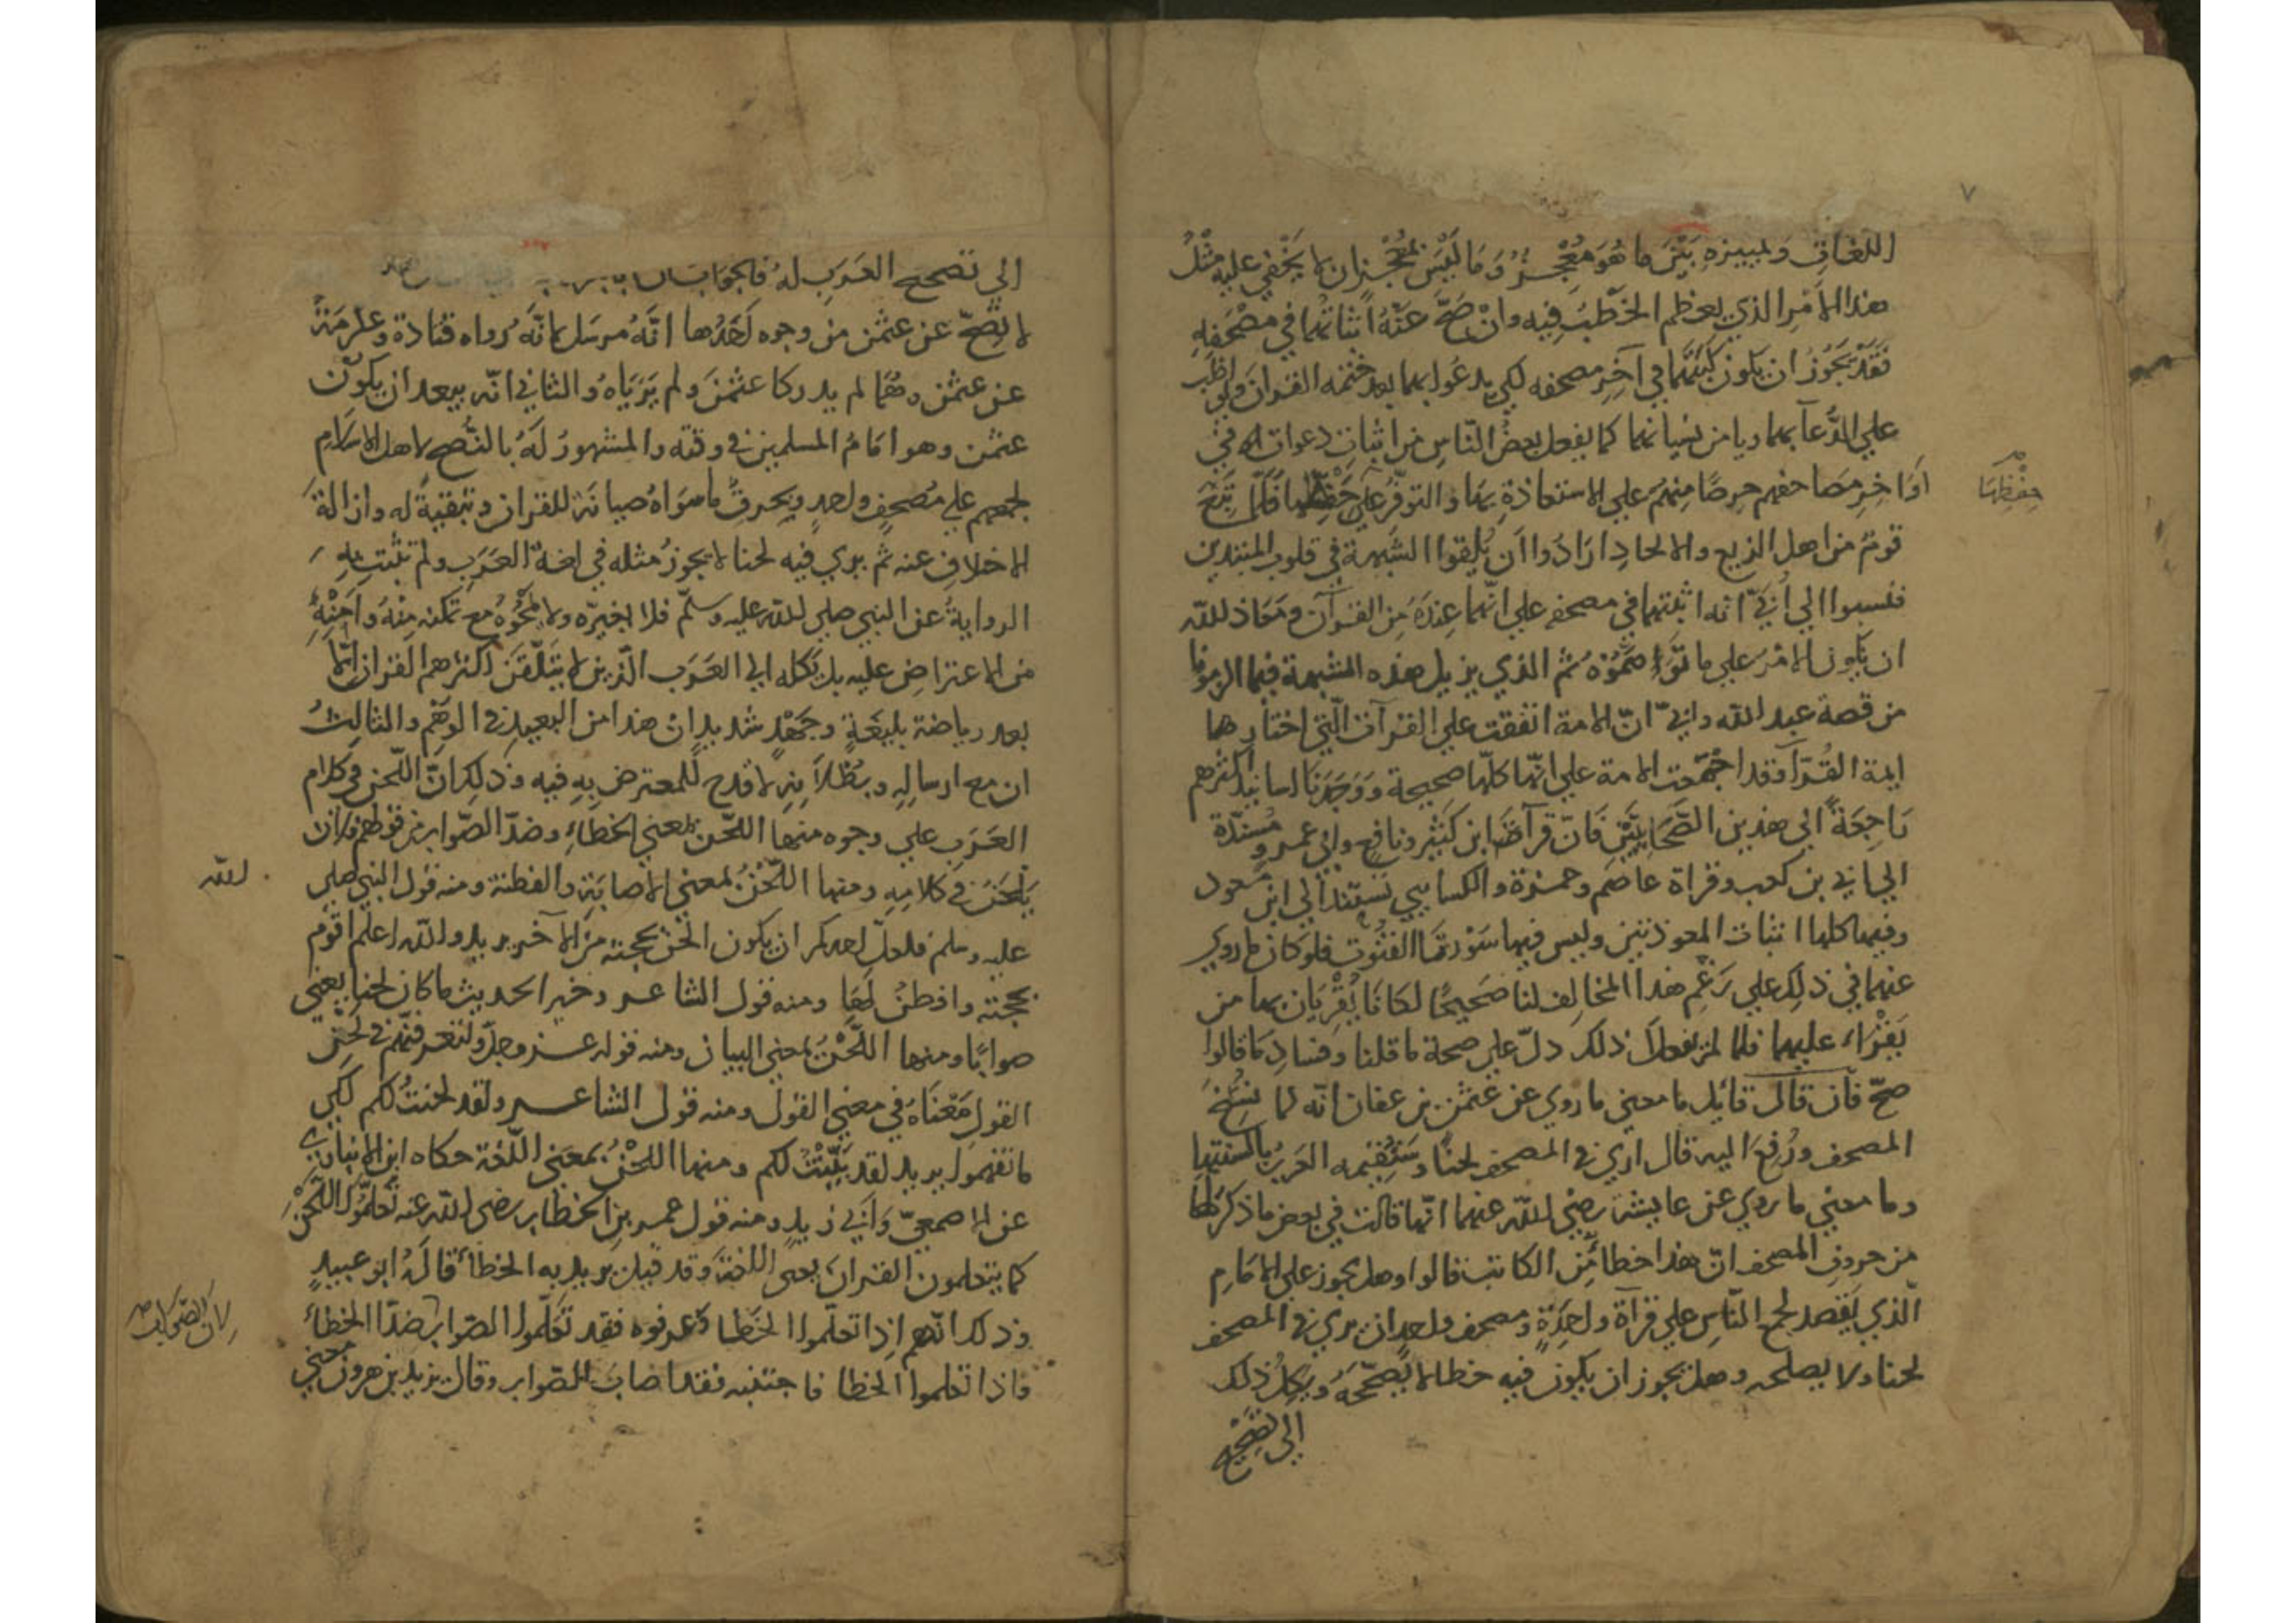 ٧
اللغات وتمييزه بَيْنَ ما هُوَ مُعْجِزٌ وَمَا لَيْسَ بمُعْجِزٍ ان لا يَخْفى عليه مثْلُ
هذا الامْرِ الذي يعظم الخَطْبُ فيه وانْ صَحَّ عَنْهُ اثباتهما في مصْحَفِهِ
فَقَدْ يَجُوزُ ان يكون كَتَبَهُما في آخِرِ مصحفه لكي يدعُوا بهما بعد ختمه القرآن ويواظب
علي الدُّعآ بهما ويأمن نسيانهما كما يفعل بعضُ النّاسِ من اثبات دعوات في
اوَاخِرِ مصَاحفهم حرصًا مِنهم علي الاستعاذة بها والتوفّر علي حفظها فلمّا
حِفْظِهَا
قومٌ من اهل الزيع والالحادِ ارَادُوا اَن يُلقوا الشّبهة في قلوب المبتدين
فنسبوا الي أُبيّ انه اثبتهما في مصحفه علي انّهما عِندَهُ مِن القرآن ومَعَاذ للّه
ان يكون الامرُ علي ما تَوَهَّمُوْهُ ثم الذي يزيل هذه الشبهة فيما
من قصة عبد الله وابيّ انّ الامة اتفقت علي القرآت الّتي اختارها
ايمة القُرّآ فقد اجْتَمَعت الامة علي انّها كلّها صحيحة وَوَجَدْنَا اسانيد اكثرهم
رَاجِعَةً الي هذين الصَّحَابِيَّيْن فَانّ قرآة ابن كَثير ونافعٍ وابي عمرو مُسْنَدَة
الي ابي بن كعب وقراة عاصَم وحمزة والكسايي تستند الي ابن مسعود
وفيها كلها اثبات المعوذتين وليس فيها سُورتا القنوت فلو كان ما روي
عنهما في ذلِك علي زعم هذا المخالِف لنا صَحيحًا لكانا يُقْرِيَان بهما من
يَقْرَاء عليهما فلما لم يفعلا ذلك دلّ علي صحة ما قلنا وفسادِ ما قالوا
صحّ فَان قالَ قائل ما معني ما روي عن عثمن بن عفان انّه لما نُسِخَ
المصحف ورُفِعَ اليه قال اري في المصحف لحنًا وسَتُقيمه العَربُ بالسنتها
وما معني ما روي عن عايشة رضي للّه عنها انّها قالت في بعض ما ذكرَ لهَا
من حروف المصحف انّ هذا خطأٌ مِن الكاتب قالوا وهل يجوز علي الامَامِ
الّذي يَقصد لجمع النّاسِ علي قرآة واحِدَةٍ ومصحف واحد ان يري في المصحف
لحنا ولا يصلحه وهل يجوز ان يكون فيه خطا لا يُصحّحَهُ ويكِلُ ذلك
الي تصحيح
الي تصحيح العَرَبِ لهُ فالجواب
لا تصِحّ عن عثمن من وجوه اَحَدُها انّهُ مرسَل لانّهُ رواه قتادة وعكرمَة
عن عثمن وهُمَا لم يدركا عثمنَ ولم يَرَيَاهُ والثاني انّه يبعد ان يكوْنَ
عثمن وهو امَامُ المسلمين في وقته والمشهورُ لَهُ بالنُّصح لاهل الاسلام
لجمعهم علي مُصحفٍ واحدٍ ويحرقُ ما سوَاهُ صيانَة للقران وتبقيةً له وازالة
الاختلافِ عنه ثم يري فيه لحنا لا يجوزُ مثله في لغة العَرَبِ ولم تثبت به
الروايةُ عن النبي صلي للّه عليه وسلّم فلا يغيّره ولا يمْحُوْهُ مع تمكنه مِنْهُ وامنه
من الاعتراضِ عليه بل يَكله الي العَرَب الّذين لا يَتَلَقّنُ اكثرهم القران الّا
بعد رياضة بليغَةٍ وجهْدٍ شديدٍ ان هذا من البعيد في الوَهْمِ والثالثُ
ان مع ارساله وبُطْلانِهِ لا قدح للمعترض بِهِ فيه وذلك انّ اللّحن في كلام
العَرَبِ علي وجوه منها اللّحن بمعني الخطاءِ وضدّ الصّواب من قولهم فلان
يَلْحَنُ في كلامِهِ ومنها اللّحْنُ بمعني الاصابَةِ والفطنة ومنه قول النبي صلي
للّه
عليه وسلم فلعلّ احدكم ان يكون الحن بحجته مِنَ الآخر يريد واللّه اعلم اقوم
بحجته وافطنُ لهَا ومنه قول الشاعر وخير الحديث ما كان لحنا يعني
صوابًا ومنها اللّحْنُ بمعني البيان ومنه قوله عزّ وجلّ ولتعرفنّهم في لحن
القول مَعْناهُ في معني القول ومنه قول الشاعر ولقد لحنتُ لكم لكي
ما تفهموا يريد لقد بَيَّنْتُ لكم ومنها اللّحْنُ بمعني اللّغة حكاه ابن الانباري
عن الاصمعيّ وَابي زيدٍ ومنه قول عمر بن الخطاب رضي للّه عنه تَعَلّمُوا اللّحْنَ
كما يتعلمون القران يعني اللغة وقد قيل يريد به الخطأ قالهُ ابو عبيدٍ
وذلك انّهم اذا تعلّموا الخَطا وعرفوه فقد تَعَلّموا الصّواب ضدّ الخطاءِ
لان الصّوَاب
فاذا تعلموا الخطا فاجتنبه فقد اصابَ الصّواب وقال يزيد بن هرون معني